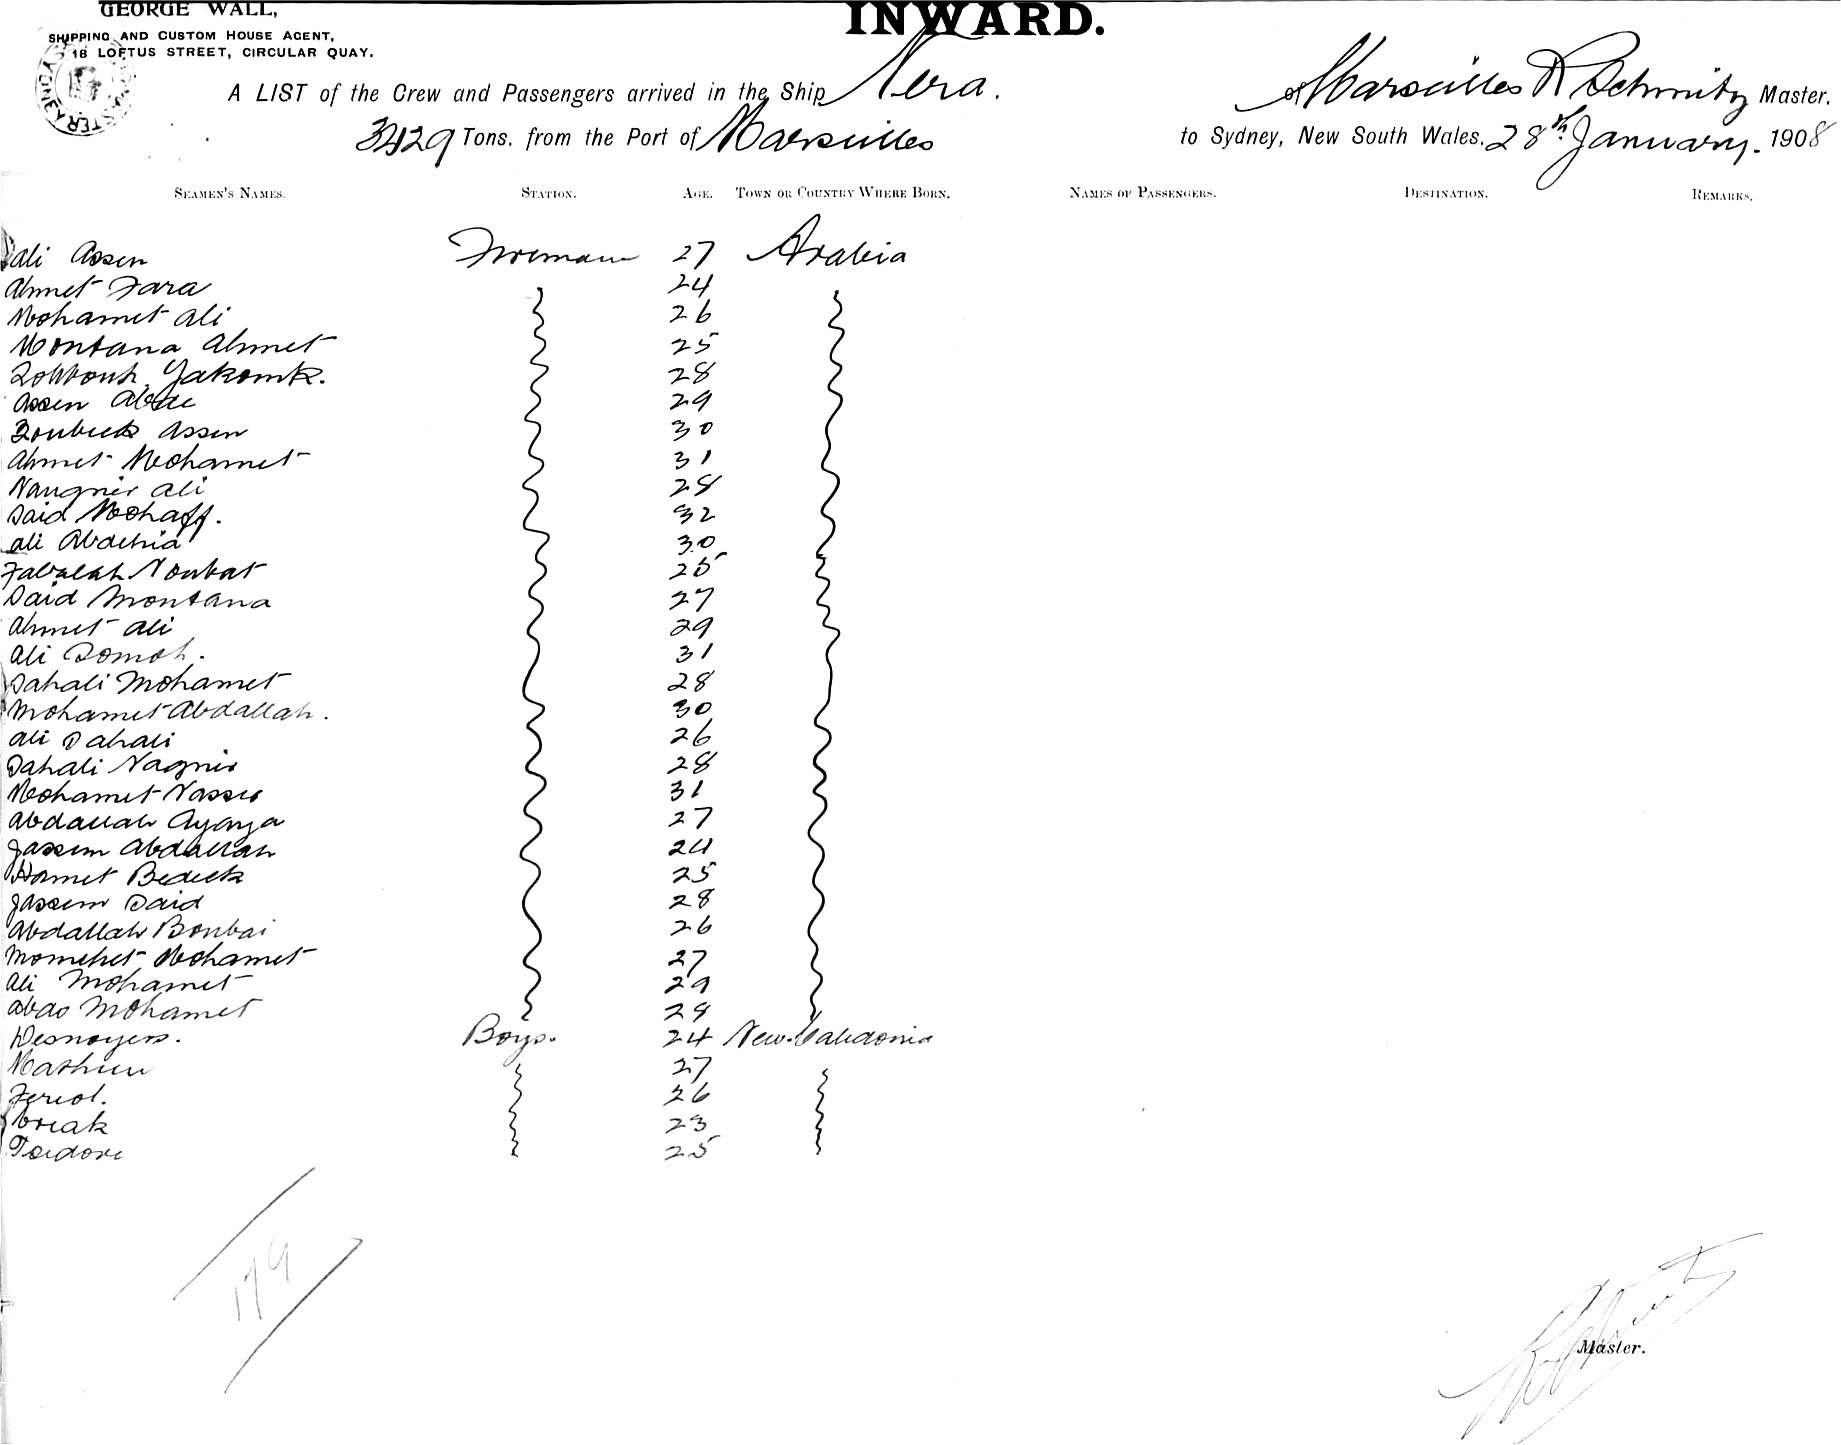 GEORGE WALL,
SHIPPING AND CUSTOM HOUSE AGENT,
18 LOFTUS STREET, CIRCULAR QUAY.
INWARD.
A LIST of the Crew and Passengers arrived in the Ship Nera. of Marseilles R Schmitz Master.
3429 Tons, from the Port of Marseilles to Sydney, New South Wales, 28th January. 1908
SEAMEN'S NAMES. STATION. AGE. TOWN OR COUNTRY WHERE BORN. NAMES OF PASSENGERS. DESTINATION. REMARKS.
Ali Assen Fireman 27 Arabia
Ahmet Fara 24
Mohamet Ali 26
Montana Ahmet 25
28
Assen Abde 29
Zoubeck Assen 30
Ahmet Mohamet 31
Nangnis Ali 28
Said Mohaff. 32
Ali Abdehia 30
Noubat 25
Said Montana 27
Ahmet Ali 29
Ali 31
Sahali Mohamet 28
Mohamet Abdallah. 30
Ali Sahali 26
Sahali Nagnis 28
Mohamet Nasser 31
Abdallah Ayaya 27
Jassem Abdallah 24
Hamet Bedeck 25
Jassem Said 28
Abdallah Boubai 26
Momehet Mohamet 27
Ali Mohamet 29
Abdo Mohamet 28
Desnoyers. Boys. 24 New Caledonia
Mathieu 27
Feriol. 26
23
Isidore 25
179
Master.